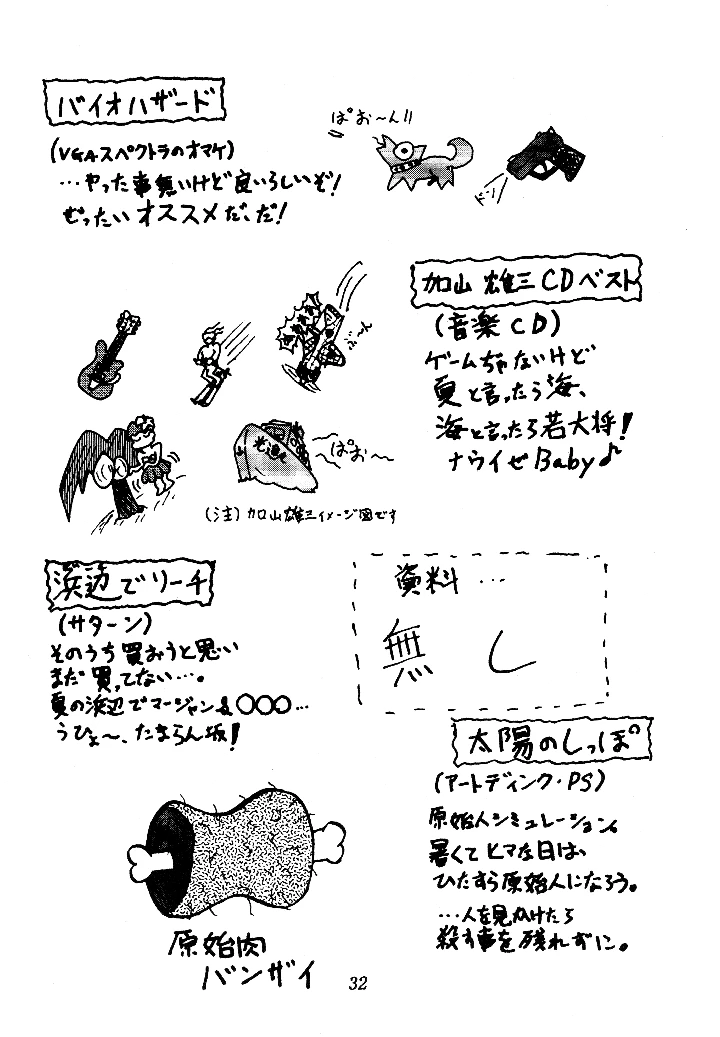 バイオハザード
(VGAスペクトラのオマケ)
…やった事無いけど良いらしいぞ!
ぜったいオススメだ、だ!
ぱお〜ん!!
ドーン
加山雄三CDベスト
(音楽CD)
ゲームぢゃないけど
夏と言ったら海、
海と言ったら若大将!
ナウイぜBaby♪
ぶ〜ん
光進丸
ぱお〜
(注)加山雄三イメージ図です
浜辺でリーチ
(サターン)
そのうち買おうと思い
まだ買ってない…。
夏の浜辺でマージャン&○○○…
うひょ〜、たまらん坂!
資料…
無し
太陽のしっぽ
(アートディンク・PS)
原始人シミュレーション。
暑くてヒマな日は、
ひたすら原始人になろう。
…人を見かけたら
殺す事を忘れずに。
原始肉
バンザイ
32